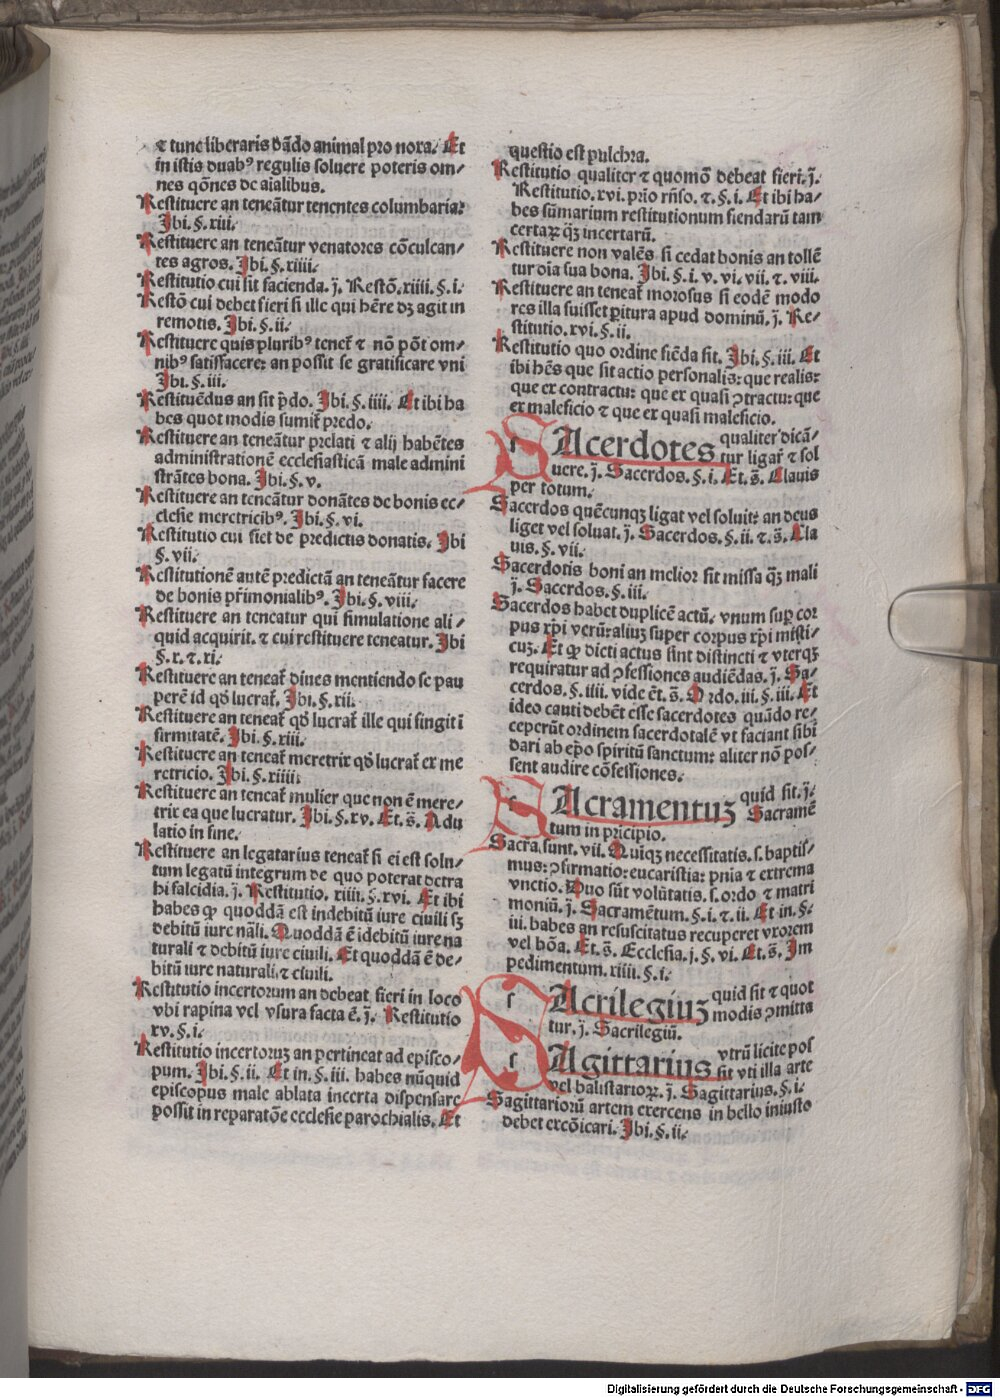 ⁊ tunc liberaris dãdo animal pro noxa. Et
in istis duabꝰ regulis soluere poteris om⸗
nes q̃ones de aïalibus.
Restituere an teneãtur tenentes columbaria:
Ibi. §. xiii.
Restituere an teneãtur venatores cõculcan⸗
tes agros. Ibi. §. xiiii.
Restitutio cui sit facienda. j̄. Restõ. xiiii. §. i.
Restõ cui debet fieri si ille qui hẽre dꝫ agit in
remotis. Ibi. §. ii.
Restituere quis pluribꝰ tenet̃ ⁊ nõ põt om⸗
nibꝰ satisfacere: an possit se gratificare vni
Ibi. §. iii.
Restituẽdus an sit p̃do. Ibi. §. iiii. Et ibi ha
bes quot modis sumit̃ predo.
Restituere an teneãtur prelati ⁊ alij habẽtes
administrationẽ ecclesiasticã male admini
strãtes bona. Ibi. §. v.
Restituere an teneãtur donãtes de bonis ec⸗
clesie meretricibꝰ. Ibi. §. vi.
Restitutio cui fiet de predictis donatis. Ibi
§. vii.
Restitutionẽ autẽ predictã an teneãtur facere
de bonis pr̃imonialibꝰ. Ibi. §. viii.
Restituere an teneatur qui simulatione ali⸗
quid acquirit. ⁊ cui restituere teneatur. Ibi
§. x. ⁊. xi.
Restituere an teneat̃ diues mentiendo se pau
perẽ id qđ lucrat̃. Ibi. §. xii.
Restituere an teneat̃ qđ lucrat̃ ille qui fingit ĩ
firmitatẽ. Ibi. §. xiii.
Restituere an teneat̃ meretrix qđ lucrat̃ ex me
retricio. Ibi. §. xiiii.
Restituere an teneat̃ mulier que non ẽ mere⸗
trix ea que lucratur. Ibi. §. xv. Et. s̃. Adu
latio in fine.
Restituere an legatarius teneat̃ si ei est solu⸗
tum legatũ integrum de quo poterat detra
hi falcidia. j̄. Restitutio. xiiii. §. xvi. Et ibi
habes ꝙ quoddã est indebitũ iure ciuili sꝫ
debitũ iure nãli. Quoddã ẽ idebitũ iure na
turali ⁊ debitũ iure ciuili. Et quoddã ẽ de⸗
bitũ iure naturali ⁊ ciuili.
Restitutio incertorum an debeat fieri in loco
vbi rapina vel vsura facta ẽ. j̄. Restitutio
xv. §. i.
Restitutio incertoruꝫ an pertineat ad episco⸗
pum. Ibi. §. ii. Et in. §. iii. habes nũquid
episcopus male ablata incerta dispensare
possit in reparatõe ecclesie parochialis. Et
questio est pulchra.
Restitutio qualiter ⁊ quomõ debeat fieri. j̄.
Restitutio. xvi. prĩo rñso. ⁊. §. i. Et ibi ha⸗
bes sũmarium restitutionum fiendarũ tam
certaꝝ q̃ꝫ incertarũ.
Restituere non valẽs si cedat bonis an tollẽ
tur oĩa sua bona. Ibi. §. i. v. vi. vii. ⁊. viii.
Restituere an teneat̃ morosus si eodẽ modo
res illa fuisset ꝑitura apud dominũ. j̄. Re⸗
stitutio. xvi. §. ii.
Restitutio quo ordine fiẽda sit. Ibi. §. iii. Et
ibi hẽs que sit actio personalis: que realis:
que ex contractu: que ex quasi ↄtractu: que
ex maleficio ⁊ que ex quasi maleficio.
SAcerdotes qualiter dicã⸗
tur ligar̃ ⁊ sol
uere. j̄. Sacerdos. §. i. Et. s̃. Clauis
per totum.
Sacerdos quẽcunqꝫ ligat vel soluit: an deus
liget vel soluat. j̄. Sacerdos. §. ii. ⁊. s̃. Cla
uis. §. vii.
Sacerdotis boni an melior sit missa q̃ꝫ mali
j̄. Sacerdos. §. iii.
Sacerdos habet duplicẽ actũ. vnum suꝑ cor
pus xp̃i verũ: aliuꝫ super corpus xp̃i misti⸗
cuꝫ. Et ꝙ dicti actus sint distincti ⁊ vterqꝫ
requiratur ad ↄfessiones audiẽdas. j̄. Sa⸗
cerdos. §. iiii. vide ẽt. s̃. Ordo. iii. §. iii. Et
ideo cauti debẽt esse sacerdotes quãdo re⸗
ceperũt ordinem sacerdotalẽ vt faciant sibi
dari ab ep̃o spiritũ sanctum: aliter nõ pos⸗
sent audire cõfessiones.
SAcramentuꝫ quid sit. j̄.
Sacramẽ
tum in pricipio.
Sacra. sunt. vii. Quiqꝫ necessitatis. s. baptis⸗
mus: ↄfirmatio: eucaristia: pñia ⁊ extrema
vnctio. Duo sũt volũtatis. s. ordo ⁊ matri
moniũ. j̄. Sacramẽtum. §. i. ⁊. ii. Et in. §.
iii. habes an resuscitatus recuperet vxorem
vel bõa. Et. s̃. Ecclesia. j. §. vi. Et. s̃. Im
pedimentum. xiiii. §. i.
SAcrilegiuꝫ quid sit ⁊ quot
modis ↄmitta
tur. j̄. Sacrilegiũ.
SAgittarius vtrũ licite pos
sit vti illa arte
vel balistarioꝝ. j̄. Sagittarius. §. i.
Sagittariorũ artem exercens in bello iniusto
debet excõicari. Ibi. §. ii.
Digitalisierung gefördert durch die Deutsche Forschungsgemeinschaft - DFG